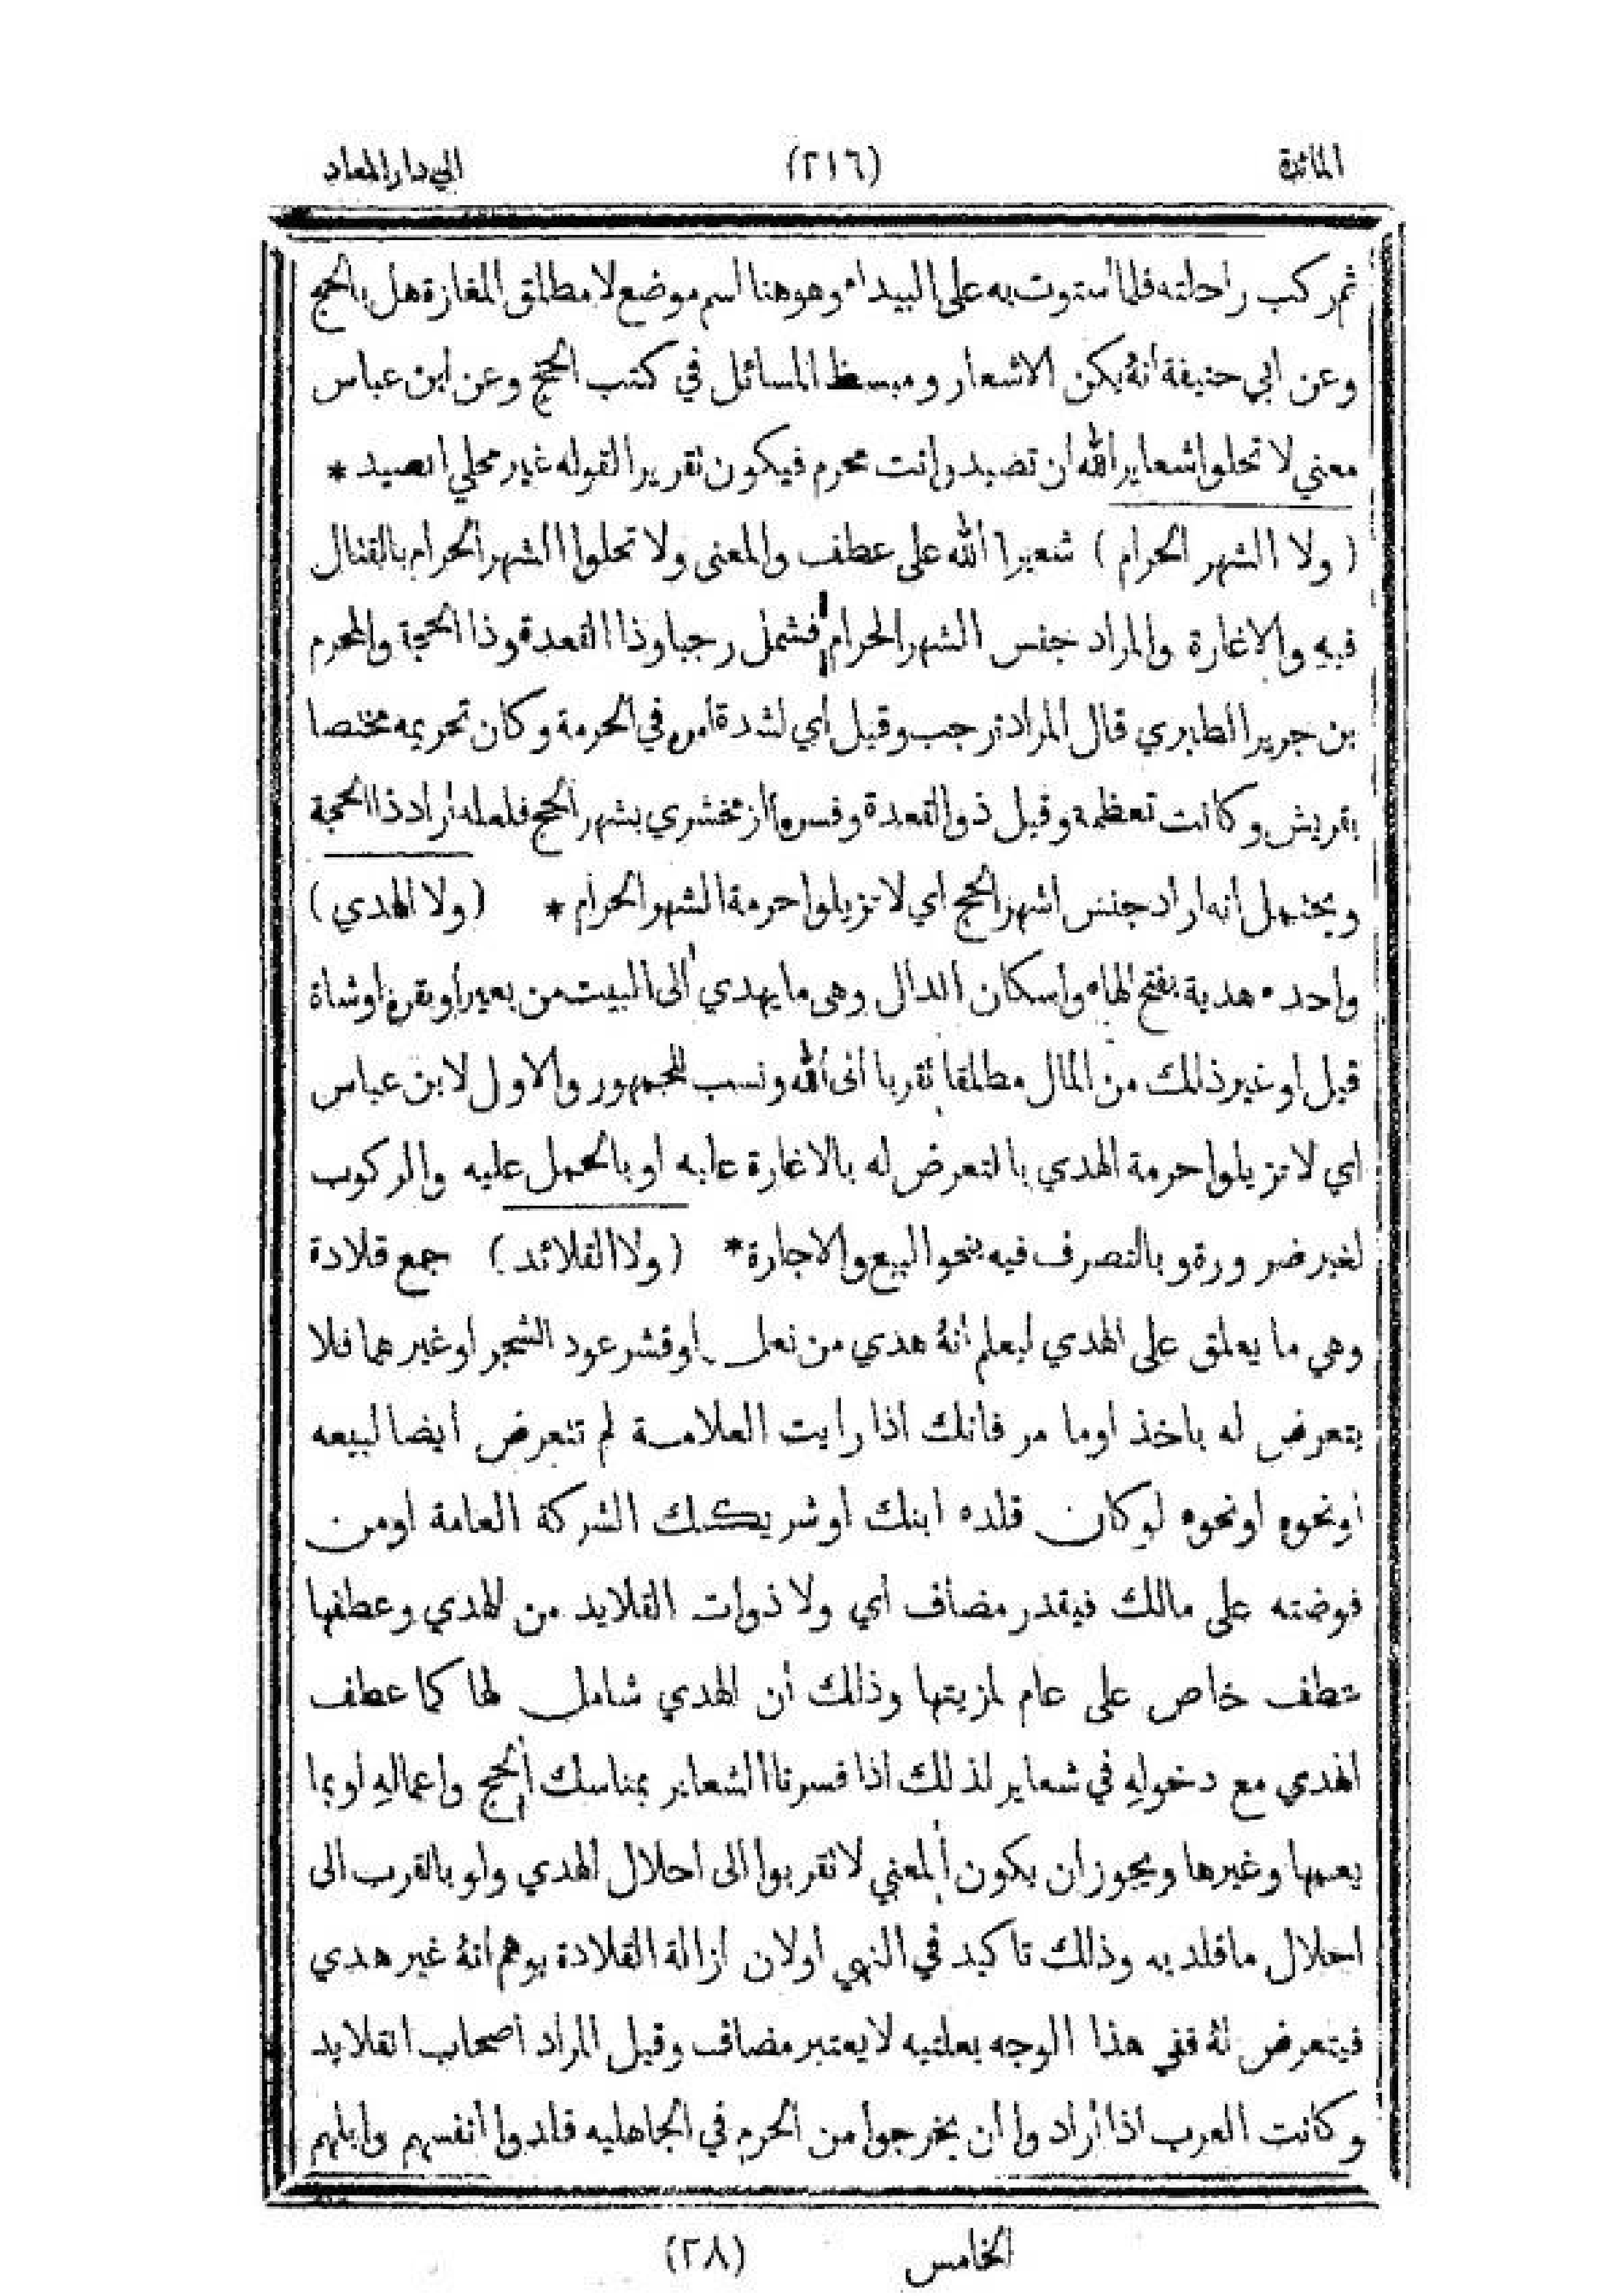 المائدة (٢١٦) الى دار المعاد
ثم ركب راحلته فلما أستوت به على البيداء وهو هنا اسم موضع لا مطلق المغازة هل بالحج
وعن ابي حنيفة انهُ يكن الاشعار ومبسط المسائل في كتب الحج وعن ابن عباس
معني لا تحلوا شعاير الله ان تصيد وانت محرم فيكون تقريرا لقوله غير محلي الصيد *
( ولا الشهر الحرام ) شعيرا الله على عطف والمعنى ولا تحلوا الشهر الحرام بالقتال
فيهِ والاغارة والمراد جنس الشهر الحرام فشمل رجبا وذا القعدة وذا الحجة والمحرم
بن جرير الطبري قال المراد رجب وقيل اي لشدة امره في الحرمة وكان تحريمه مختصا
بقريش وكانت تعظمه وقيل ذو القعدة وفسره الزمخشري بشهر الحج فلعله اراد ذا الحجة
ويحتمل انه اراد جنس اشهر الحج اي لا تزيلوا حرمة الشهر الحرام * (ولا الهدي)
واحده هدية بفتح الهاء وأسكان الدال وهى ما يهدي ألى البيت من بعير أو بقرة او شاة
قيل او غير ذلك من المال مطلقا تقربا الى الله ونسب للجمهور والاول لابن عباس
اي لا تزيلوا حرمة الهدي بالتعرض له بالاغارة عليه او بالحمل عليه والركوب
لغير ضرورة و بالتصرف فيه بنحو البيع والاجارة* (ولا القلائد) جمع قلادة
وهي ما يعلق على الهدي ليعلم انهُ هدي من نعل أو قشر عود الشجر او غيرهما فلا
يتعرض له باخذ اوما مر فانك اذا رايت العلامة لم تتعرض أيضا لبيعه
اونحوه اونحوه لوكان قلده ابنك او شريكك الشركة العامة اومن
فوضته على مالك فيقدر مضاف أي ولا ذوات القلايد من الهدي وعطفها
عطف خاص على عام لمزيتها وذلك أن الهدي شامل لها كما عطف
الهدي مع دخولهِ في شعاير لذلك اذا فسرنا الشعاير بمناسك الحج واعمالهِ او بما
يعمها وغيرها ويجوز ان يكون المعني لا تقربوا الى احلال الهدي ولو بالقرب الى
احلال ما قلد به وذلك تاكيد في النهي اولان ازالة القلادة يوهم انهُ غير هدي
فيتعرض لهُ ففي هذا الوجه بعلتيه لا يعتبر مضاف وقيل المراد أصحاب القلايد
وكانت العرب اذا أرادوا أن يخرجوا من الحرم في الجاهليه قلدوا انفسهم وابلهم
الخامس (٢٨)